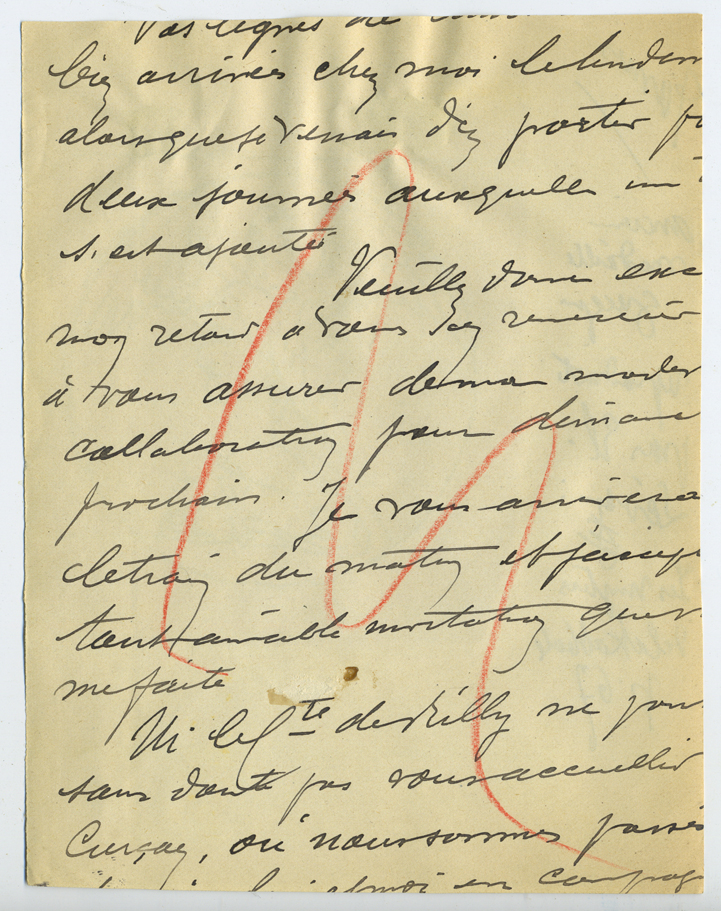 Vos lignes de
bien arrivées chez moi le lendem
alors que je venais d'en partir p
deux journées auxquelle un
s'est ajouté
Veuillez donc exc
mon retard à vous en remercier
à vous assurer de ma modes
collaboration pour dimanc
prochain. Je vous arriverai
le train du matin et j'accep
tant aimable invitation que v
me faite
M. le Cte de Rilly ne pou
sans doute pas vous accueillir
Curçay, où nous sommes passés
et moi en compag